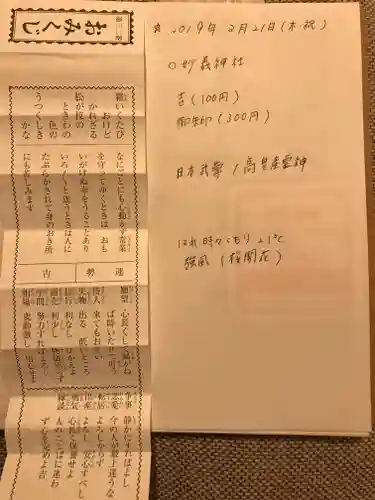 第三番
おみくじ
霜いくたび
おけど
かれざる
松が枝の
ときわの
色の
うつくしき
かな
なにごとにも心動かず常業
を守ってゆくときは おも
いがけぬ幸をうることあり
いろ／＼と迷うときは人に
たぶらかされて身のおき所
にも苦しみます
運勢 吉
願望 心長くして
待人 来てもおそい
失物 出る 低いところ
商売 利少し
学問 努力すればよろし
相場 変動激し
争事 静かにすればよし
恋愛 今の人が最上迷うな
転居 よろしからず
出産 よろし 安心すべし
病気 心長く保養せよ
縁談 人のことばに迷わ
ず心を定めよ吉
2019年 3月21日(木・祝)
○妙義神社
吉(100円)
御朱印(300円)
日本武尊/高皇産霊神
はれ時々くもり 21℃
強風 (桜開花)